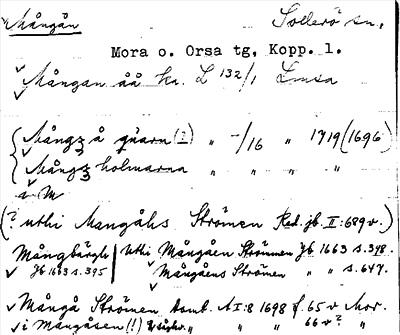 Mångån Sollerö sn.
Mora o. Orsa tg, Kopp. l.
Mångan åå ka. L 132/1 Lmsa
Mångz å quarn (?) " -/16 " 1719 (1696)
Mångz holmarna " " " "
i M
(? uthi Mangåhs Strömen Red. jb. II:689 v.)
Mångbärgh Jb 1663 s. 395
uthi Mångåen Strömmen Jb 1663 s. 398.
Mångåens Strömen " " s. 647.
Mångå Strömen Domb. A I:8 1698 f. 65 v Mor.
i Mångåsen (!) " " 66 v? "